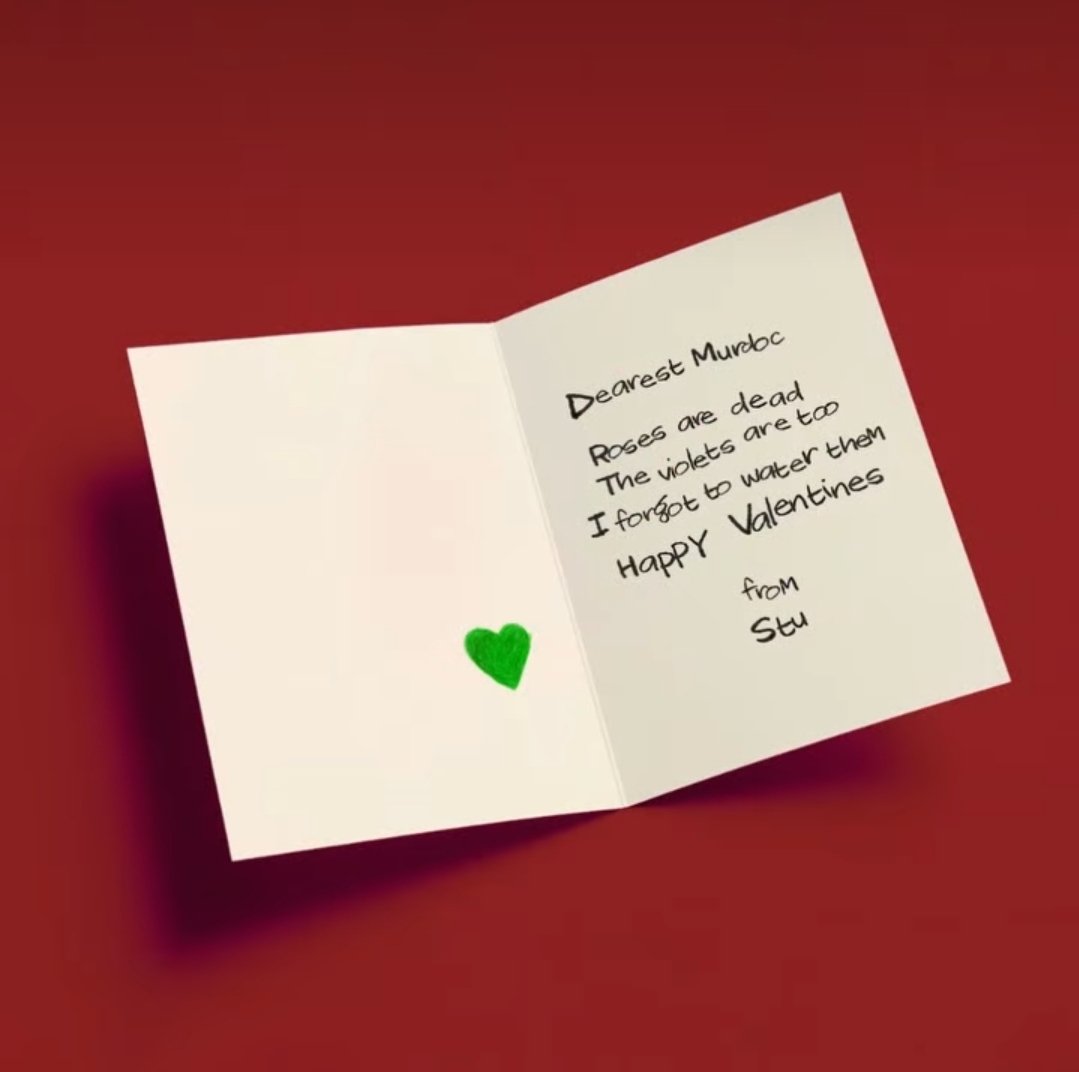 Dearest Murdoc
Roses are dead
The violets are too
I forgot to water them
Happy Valentines
from
Stu